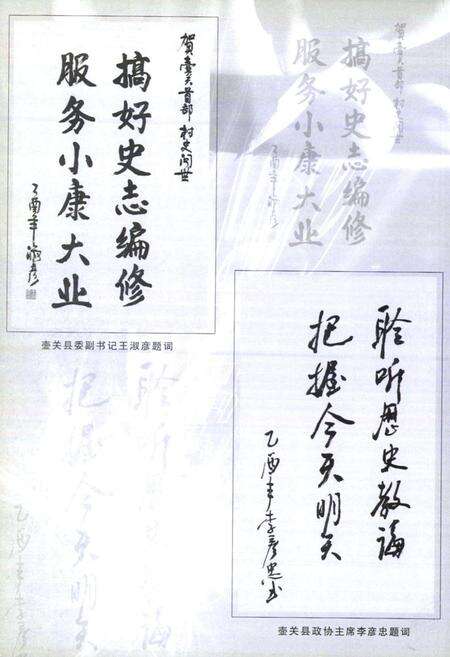 贺壶关首部村史问世
搞好史志编修
服务小康大业
乙酉年淑彦
壶关县委副书记王淑彦题词
聆听历史教诲
把握今天明天
乙酉年李彦忠书
壶关县政协主席李彦忠题词